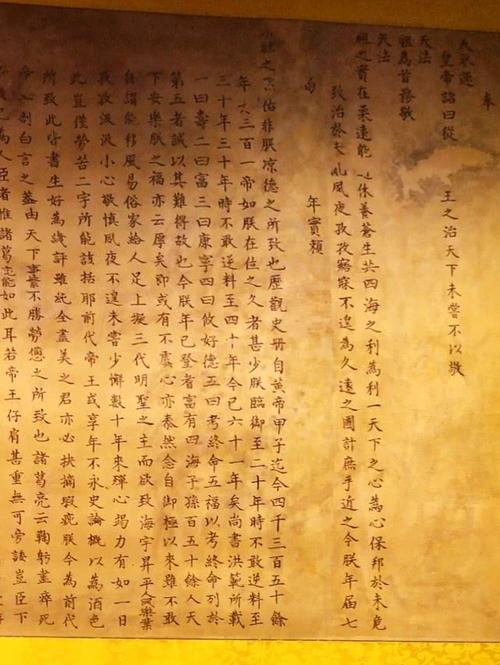 奉
天承運
皇帝詔曰從 王之治天下未嘗不以敬
天法
祖為首務敬
天法
祖之實在柔遠能 休養蒼生共四海之利為利一天下之心為心保邦於未危
致治於未亂夙夜孜孜寤寐不遑為久遠之國計庶乎近之今朕年屆七
旬 年實賴
之默佑非朕涼德之所致也歷觀史冊自黃帝甲子迄今四千三百五十餘
年 三百一帝如朕在位之久者甚少朕臨御至二十年時不敢逆料至
三十年三十年時不敢逆料至四十年今已六十一年矣尚書洪範所載
一曰壽二曰富三曰康寧四曰攸好德五曰考終命五福以考終命列於
第五者誠以其難得故也今朕年已登耆富有四海子孫百五十餘人天
下安樂朕之福亦云厚矣即或有不虞心亦泰然念自御極以來雖不敢
自謂能移風易俗家給人足上擬三代明聖之主而欲致海宇昇平人民樂業
孜孜汲汲小心敬慎夙夜不遑未嘗少懈數十年來殫心竭力有如一日
此豈僅勞苦二字所能該括耶前代帝王或享年不永史論概以為酒色
所致此皆書生好為譏評雖純全盡美之君亦必抉摘瑕疵朕今為前代
帝王剖白言之蓋由天下事繁不勝勞憊之所致也諸葛亮云鞠躬盡瘁死
已為人臣者惟諸葛亮能如此耳若帝王仔肩甚重無可旁諉豈臣下